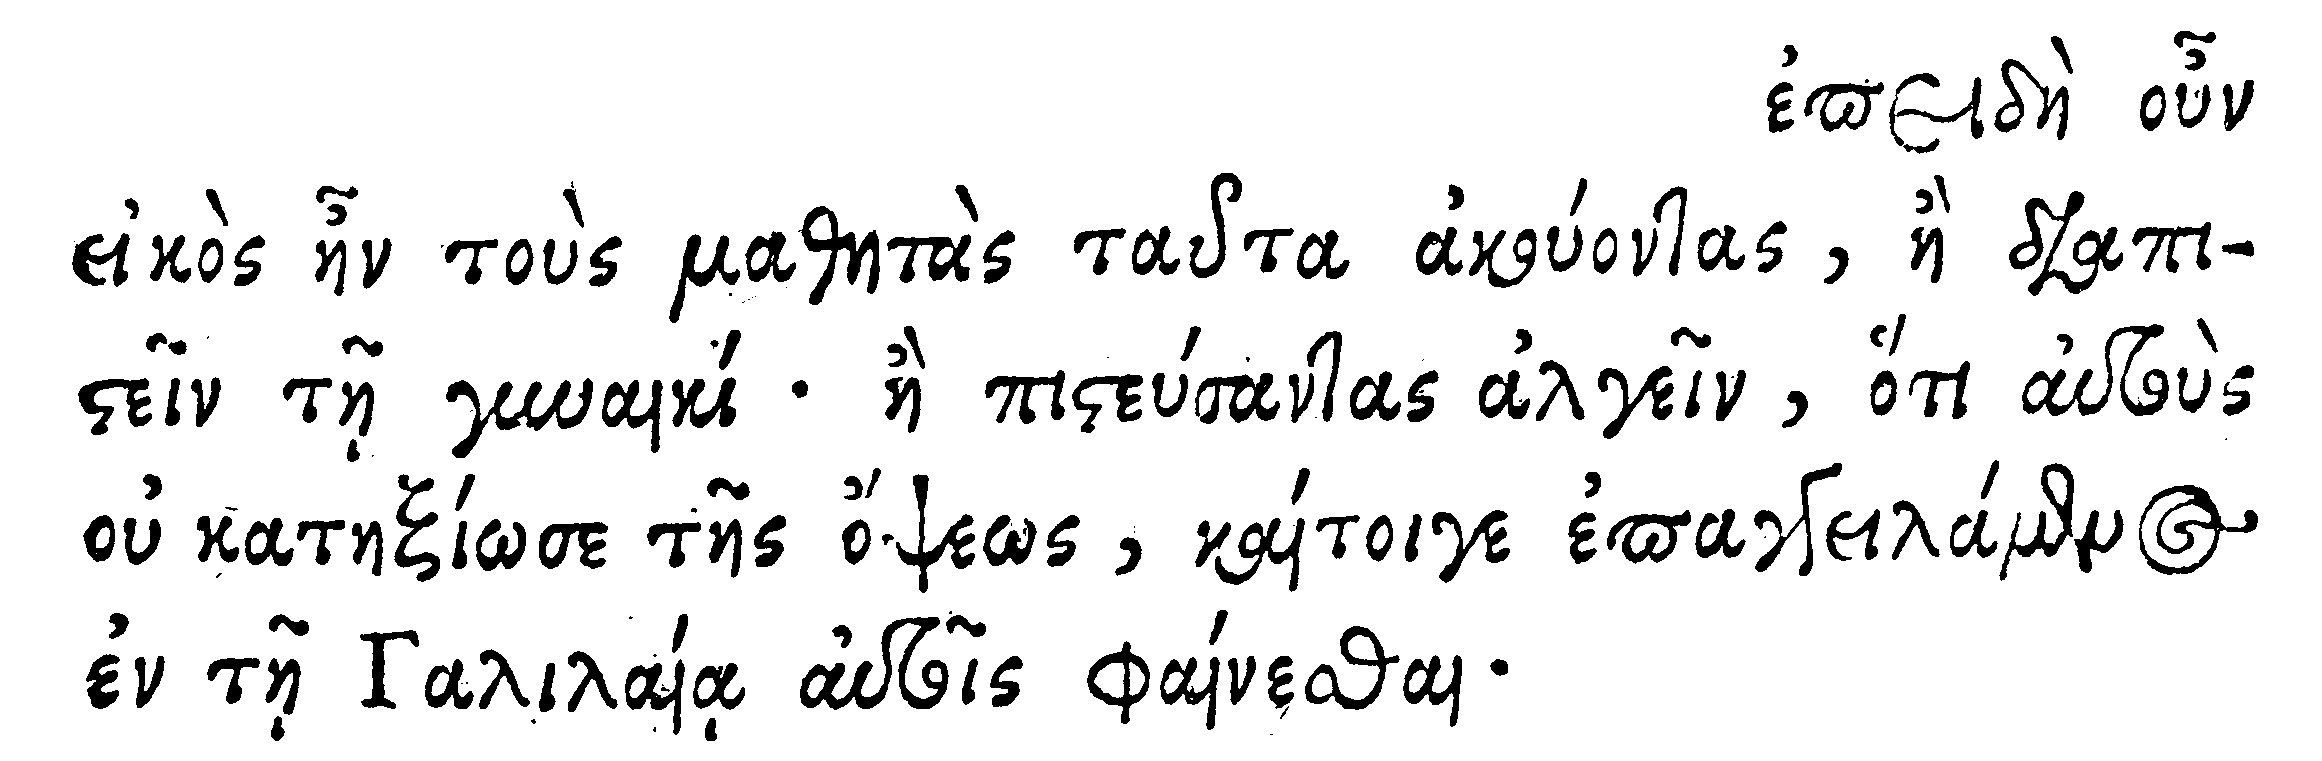 ἐπειδὴ οὖν
εἰκὸς ἦν τοὺς μαθητὰς ταῦτα ἀκούοντας, ἢ διαπι-
στεῖν τῇ γυναικί· ἢ πιστεύσαντας ἀλγεῖν, ὅτι αὐτοὺς
οὐ κατηξίωσε τῆς ὄψεως, καίτοιγε ἐπαγγειλάμενος
ἐν τῇ Γαλιλαίᾳ αὐτοῖς φαίνεσθαι·